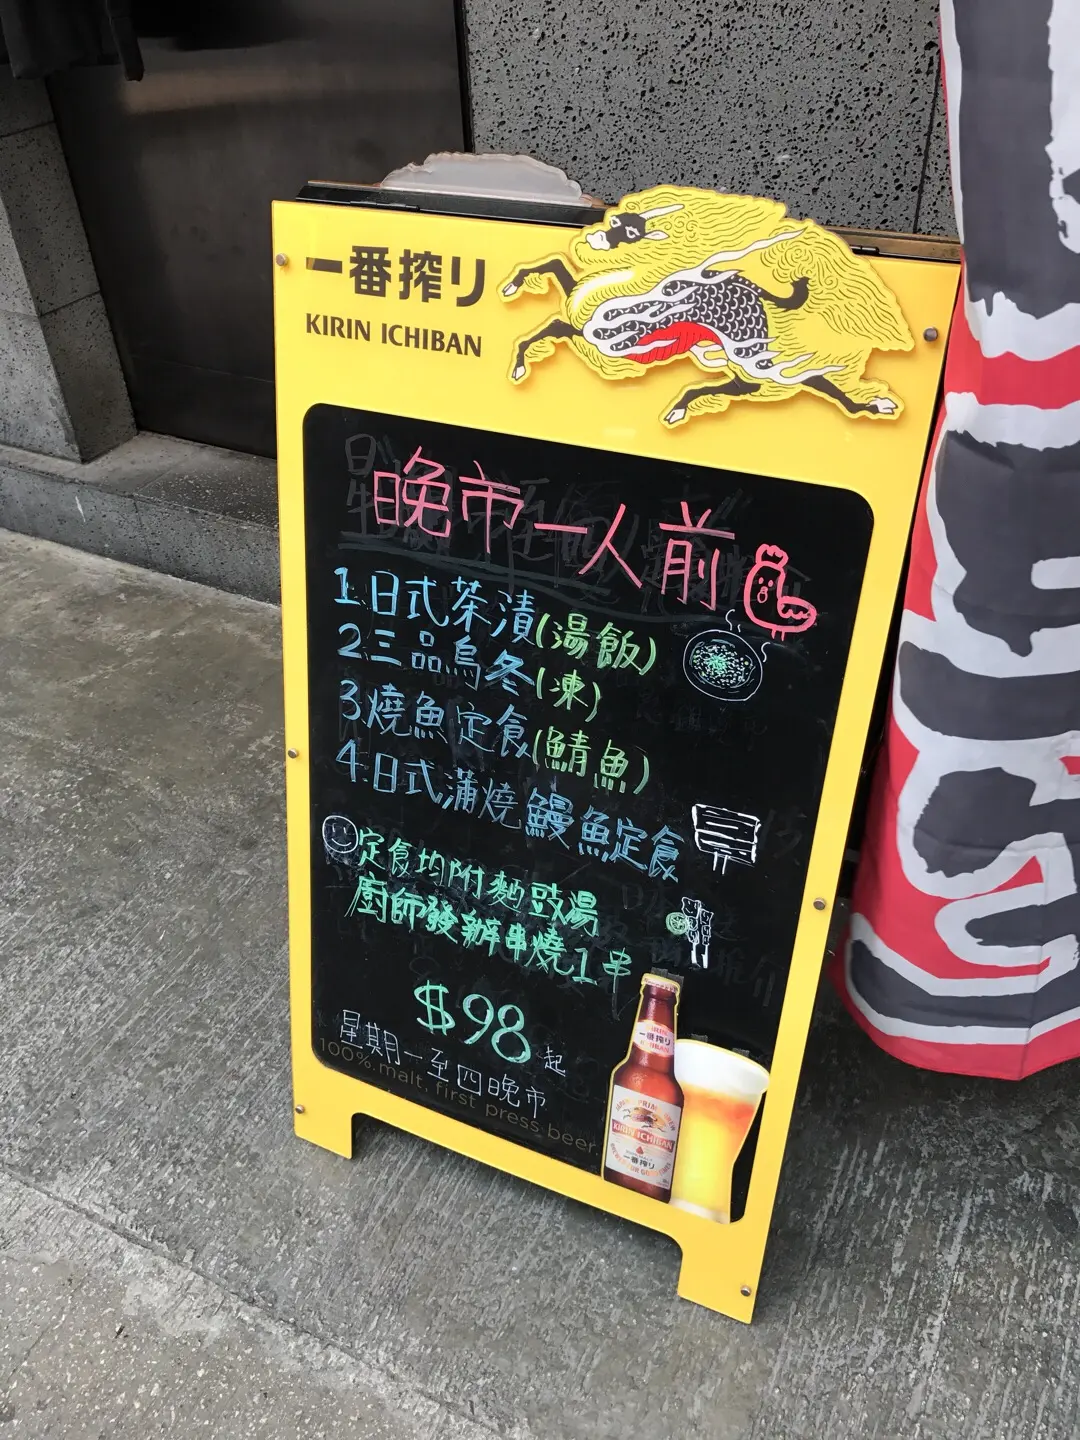 一番搾り
KIRIN ICHIBAN
晚市一人前
1.日式茶漬(湯飯)
2.三品烏冬(凍)
3.燒魚定食(鯖魚)
4.日式蒲燒鰻魚定食
定食均附麵豉湯
廚師發辦串燒1串
$98起
星期一至四晚市
100% malt, first press beer.
KIRIN ICHIBAN
一番搾り